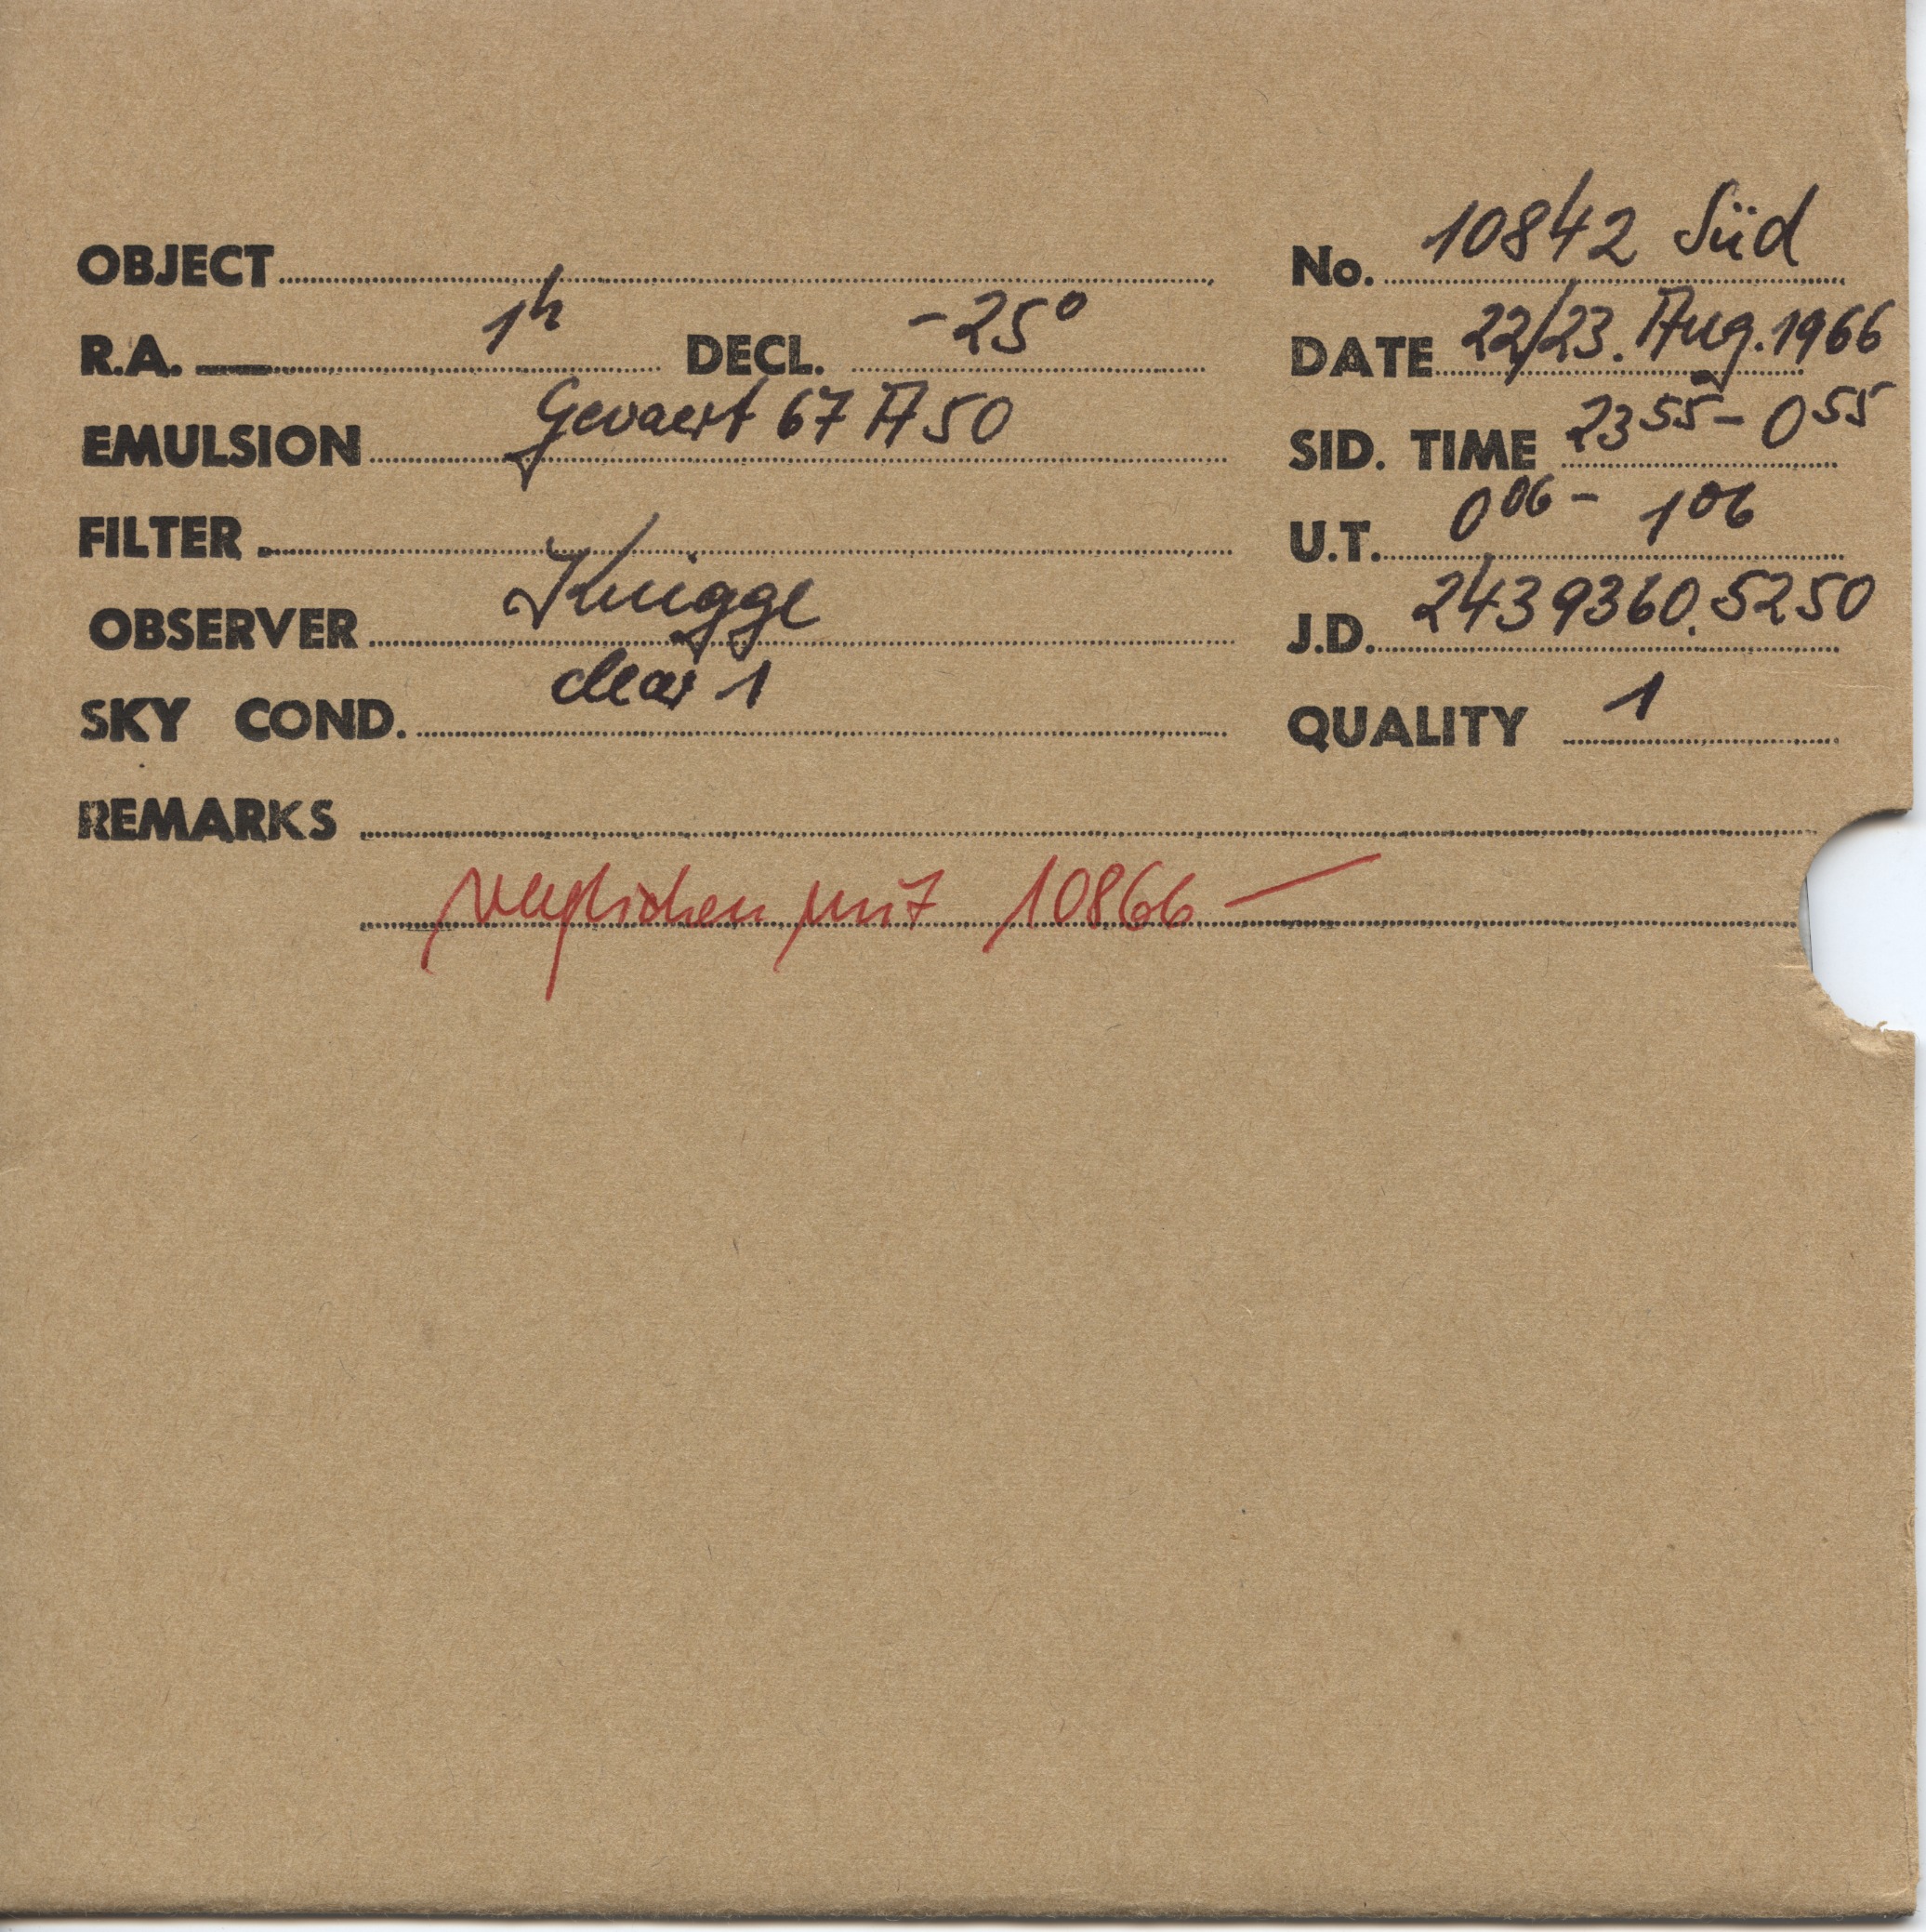 OBJECT No. 10842 Süd
R.A. 1h DECL. -25° DATE 22/23. Aug. 1966
EMULSION Gevaert 67 A 50 SID. TIME 23 55 - 0 55
FILTER U.T. 0 06 - 1 06
OBSERVER Knigge J.D. 2439360.5250
SKY COND. clear 1 QUALITY 1
REMARKS
verglichen mit 10866 —